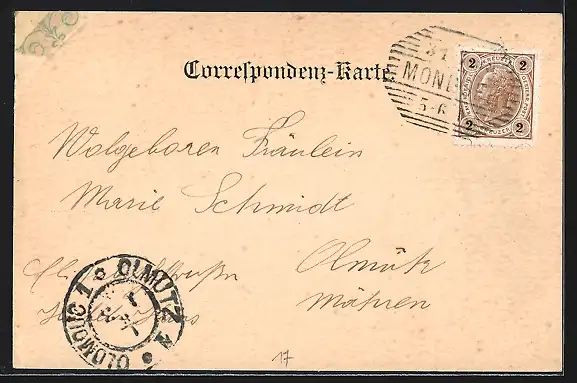 Correspondenz-Karte
31
MOND
5-6
2 KREUZER 2
2 KREUZER 2
Wolgeboren Fräulein
Marie Schmidt
Olmütz
Mähren
OLMÜTZ 1
OLOMOUC 1
17